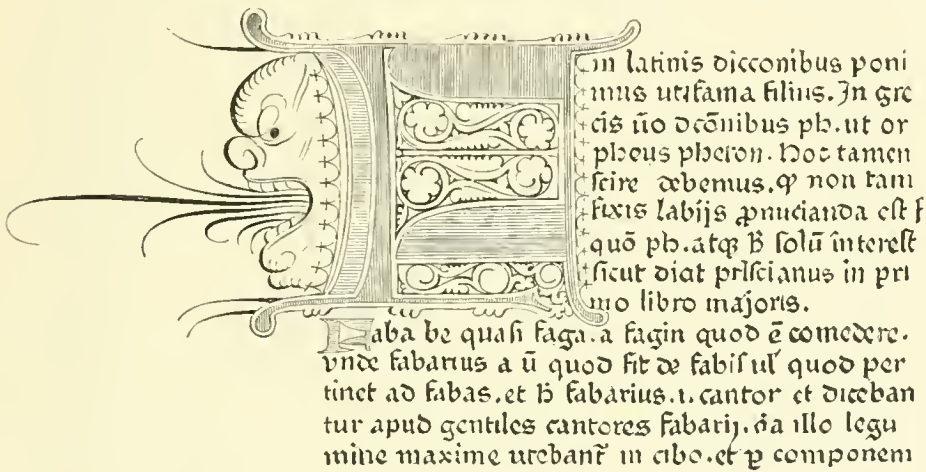 F in latinis dicconibus poni
mus ut fama filius. In gre
cis ūo dcōnibus ph. ut or
pheus pheron. Hoc tamen
scire debemus. ꝙ non tam
fixis labijs ꝓnūcianda est f
quō ph. atqꝫ ħ solū interest
sicut dicit priscianus in pri
mo libro majoris.
Faba be quasi faga. a fagin quod ē comedere.
vnde fabarius a ū quod fit de fabis ul' quod per
tinet ad fabas. et ħ fabarius. i. cantor et diceban
tur apud gentiles cantores fabarij. illo legu
mine maxime utebant᷒ in cibo. et ꝑ componem